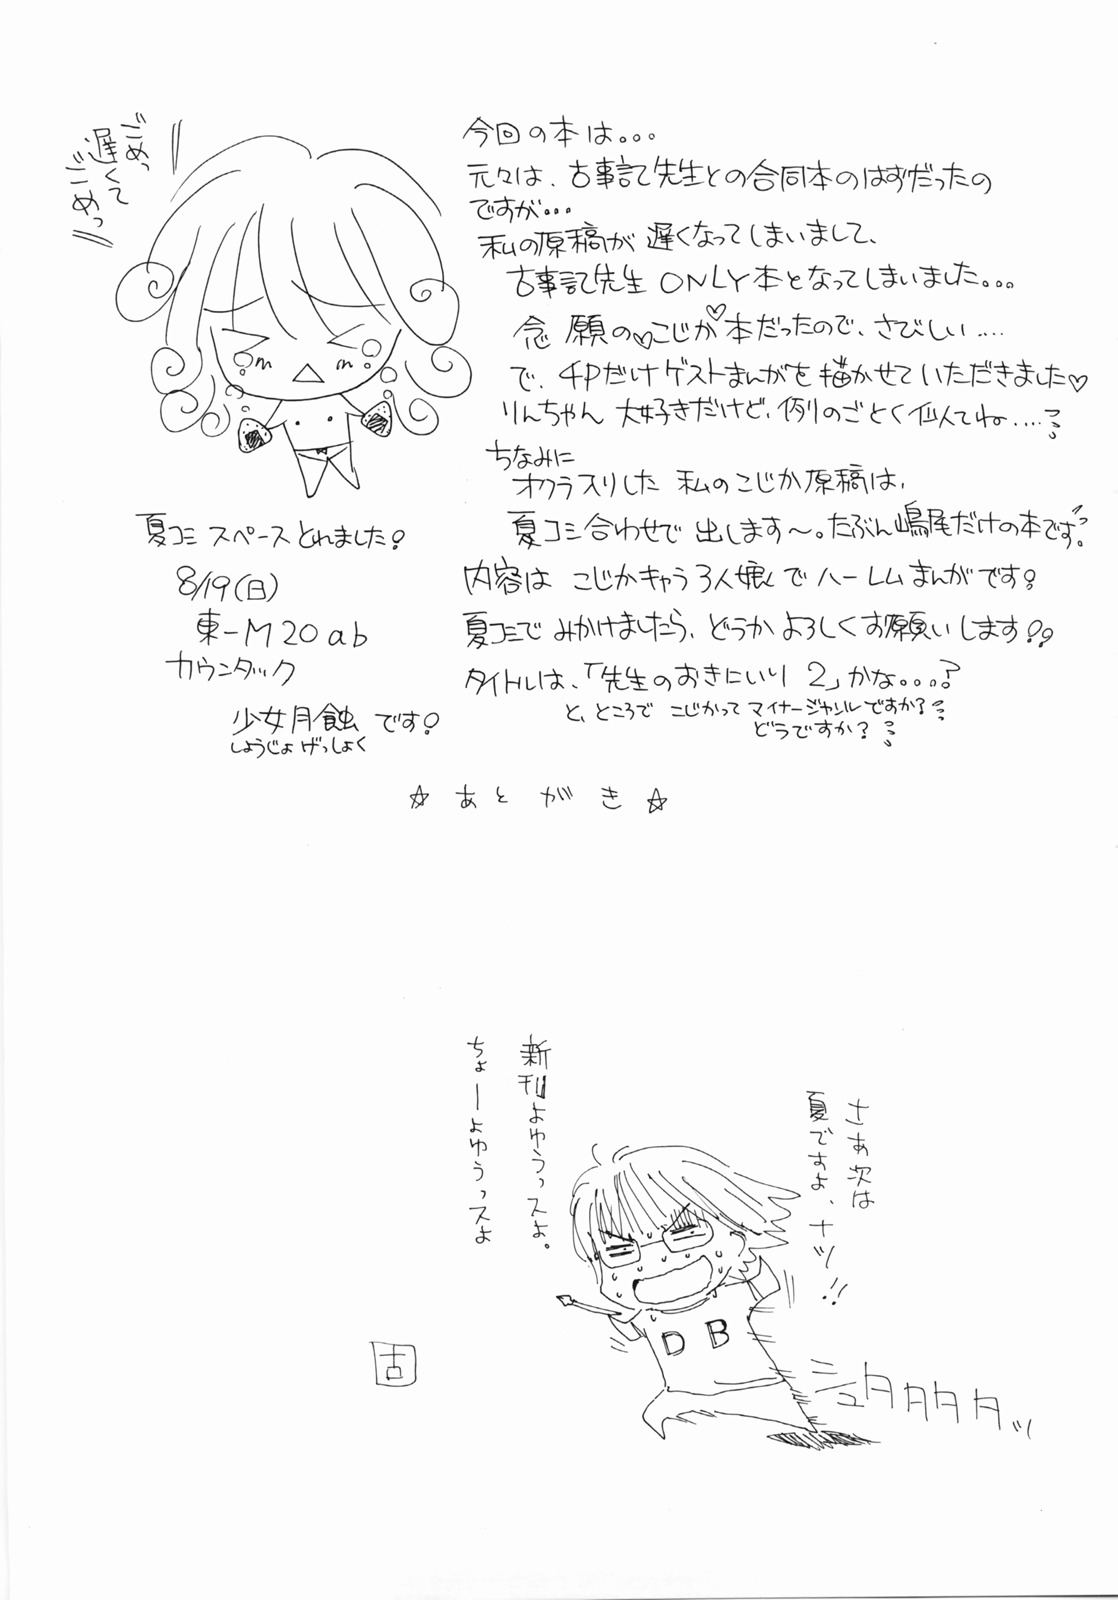 ごめっ
遅くて
ごごめっ
今回の本は。。。
元々は、古事記先生との合同本のはずだったの
ですが。。。
私の原稿が遅くなってしまいまして、
古事記先生ONLY本となってしまいました。。。
念願の♡こじか♡本だったので、さびしい....
で、4Pだけゲストまんがを描かせていただきました♡
りんちゃん大好きだけど、例のごとく似てね.....
ちなみに
オクラ入りした私のこじか原稿は、
夏コミ合わせで出します〜。たぶん嶋尾だけの本です。
内容はこじかキャラ3人娘でハーレムまんがです!
夏コミでみかけましたら、どうかよろしくお願いします!!
タイトルは、「先生のおきにいり2」かな。。。。?
と、ところでこじかってマイナージャンルですか?
どうですか?
夏コミスペースとれました!
8/19(日)
東-M20ab
カウンタック
少女月蝕です!
しょうじょげっしょく
☆あとがき☆
さあ次は
夏ですよ、ナツ!!
新刊よゆうっスよ。
ちょーよゆうっスよ
DB
シュタタタタッ
古